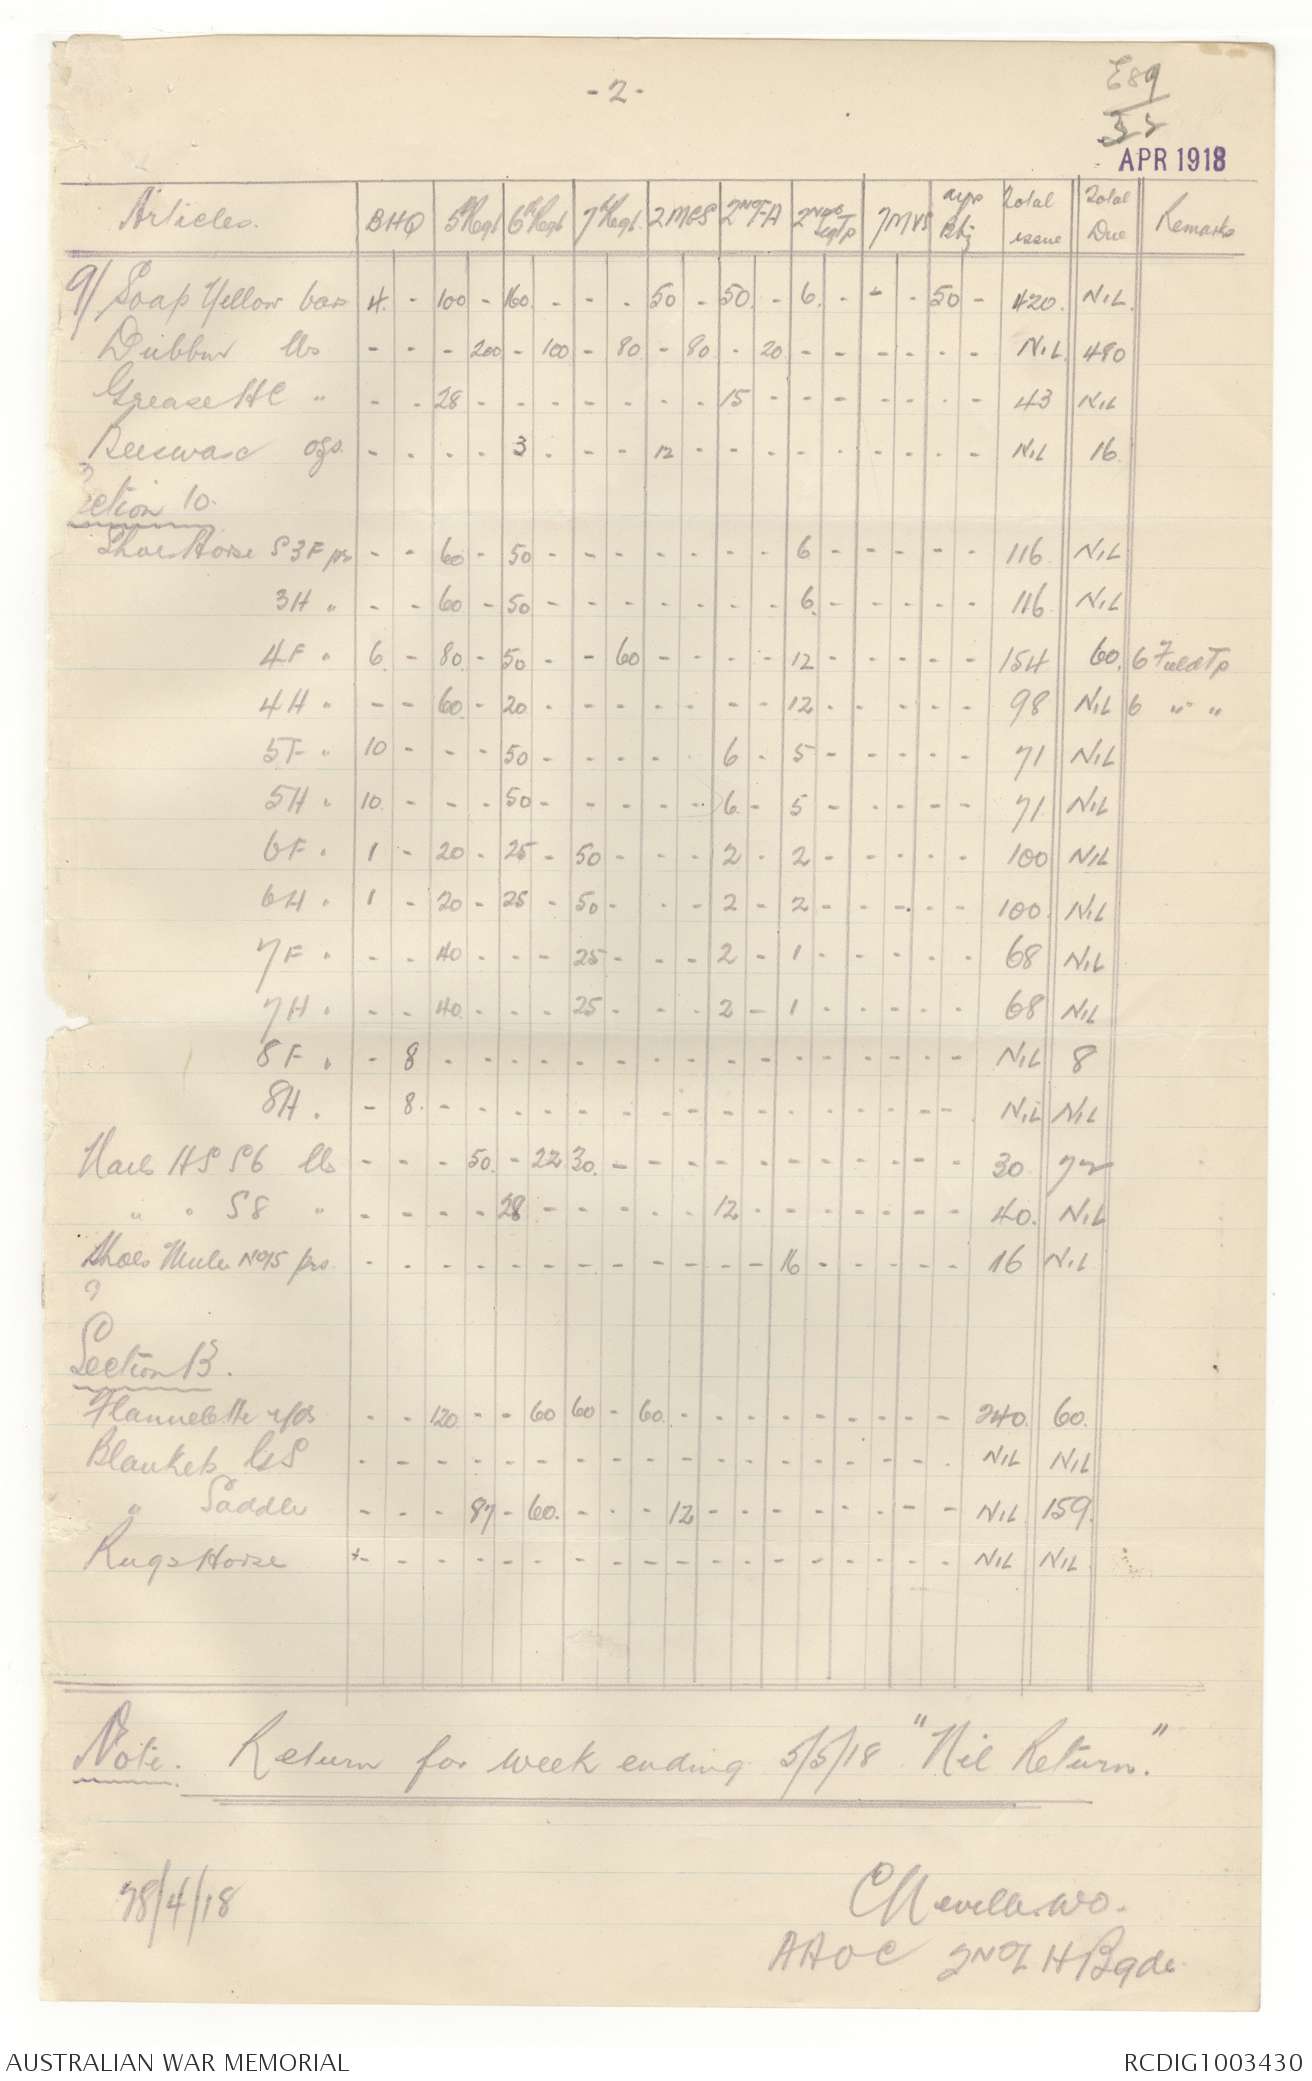 - 2 -
E89
32
APR 1918
Articles. BHQ 5th Regt 6th Regt 7th Regt 2 MGS 2nd FA 2nd Sig Tp 7 MVS Total issue Total Due Remarks
9/ Soap Yellow bars 4. - 100 - 160. - - - 50 - 50. - 6. - - - 50 - 420. NIL.
Dubbin lbs - - - 200 - 100 - 80 - 80. - 20 - - - - - - NIL. 480
Grease HC " - - 28 - - - - - - - 15 - - - - - - - 43 NIL
Beeswax ozs. - - - - 3 - - - 12 - - - - - - - - - NIL 16
Section 10.
Shoes Horse S 3F prs - - 60 - 50 - - - - - - - 6 - - - - - 116 NIL
3H " - - 60 - 50 - - - - - - - 6. - - - - - 116 NIL
4F " 6. - 80. - 50 - - 60 - - - - 12 - - - - - 154 60. 6 Field Tp
4H " - - 60. - 20 - - - - - - - 12 - - - - - 98 NIL 6 " "
5F " 10 - - - 50 - - - - - 6 - 5 - - - - - 71 NIL
5H " 10. - - - 50 - - - - - 6 - 5 - - - - - 71 NIL
6F " 1 - 20 - 25 - 50 - - - 2 - 2 - - - - - 100 NIL
6H " 1 - 20 - 25 - 50 - - - 2 - 2 - - - - - 100. NIL
7F " - - 40 - - - 25 - - - 2 - 1 - - - - - 68 NIL
7H " - - 40 - - - 25 - - - 2 - 1 - - - - - 68 NIL
8F " - 8 - - - - - - - - - - - - - - - - NIL 8
8H " - 8. - - - - - - - - - - - - - - - - NIL NIL
Nails HS S6 lbs - - - 50. - 22 30. - - - - - - - - - - - 30 72
" " S8 " - - - - 28 - - - - - 12 - - - - - - - 40. NIL
Shoes Mule No 5 prs. - - - - - - - - - - - - 16 - - - - - 16 NIL
Section 13.
Flannelette yds - - 120. - - 60 60 - 60. - - - - - - - - - 240. 60.
Blankets GS - - - - - - - - - - - - - - - - - - NIL NIL
" Saddle - - - 87 - 60. - - - 12 - - - - - - - - NIL 159.
Rugs Horse - - - - - - - - - - - - - - - - - - NIL NIL.
Note. Return for week ending 5/5/18 "Nil Return."
28/4/18
C Neville. WO.
AAOC 2nd L H Bgde
AUSTRALIAN WAR MEMORIAL
RCDIG1003430